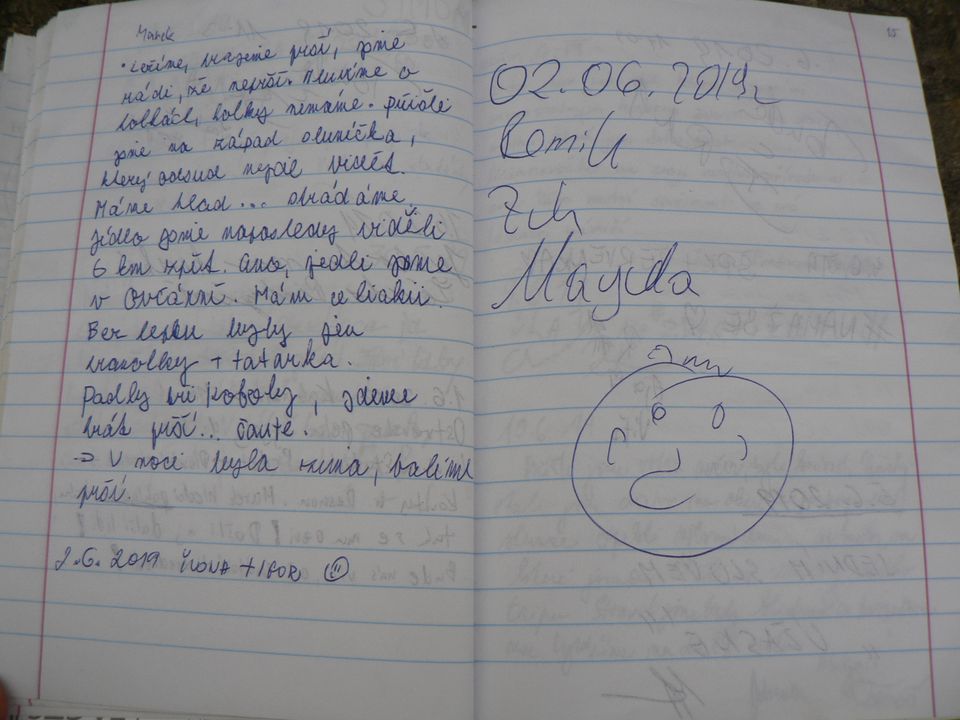 Marek
• Ležíme, hrajeme prší, jsme
rádi, že neprší. Mluvíme o
holkách, holky nemáme. přišli
jsme na západ sluníčka,
který odsud nejde vidět.
Máme hlad... strádáme,
jídlo jsme naposledy viděli
6 km zpět. Ano, jedli jsme
v Ovčárni. Mám celiakii.
Bez lepku byly jen
hranolky + tatarka.
Padly tři koboly, jdeme
hrát prší... čaute.
→ V noci byla zima, balíme
prší.
2.6. 2019 + IGOR
02.06.2019
Mayda
15